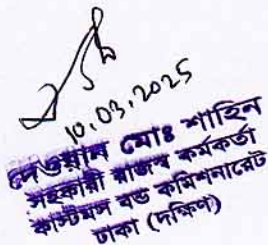 10.03.2025
দেওয়ান মোঃ শাহিন
সহকারী রাজস্ব কর্মকর্তা
কাস্টমস বন্ড কমিশনারেট
ঢাকা (দক্ষিণ)